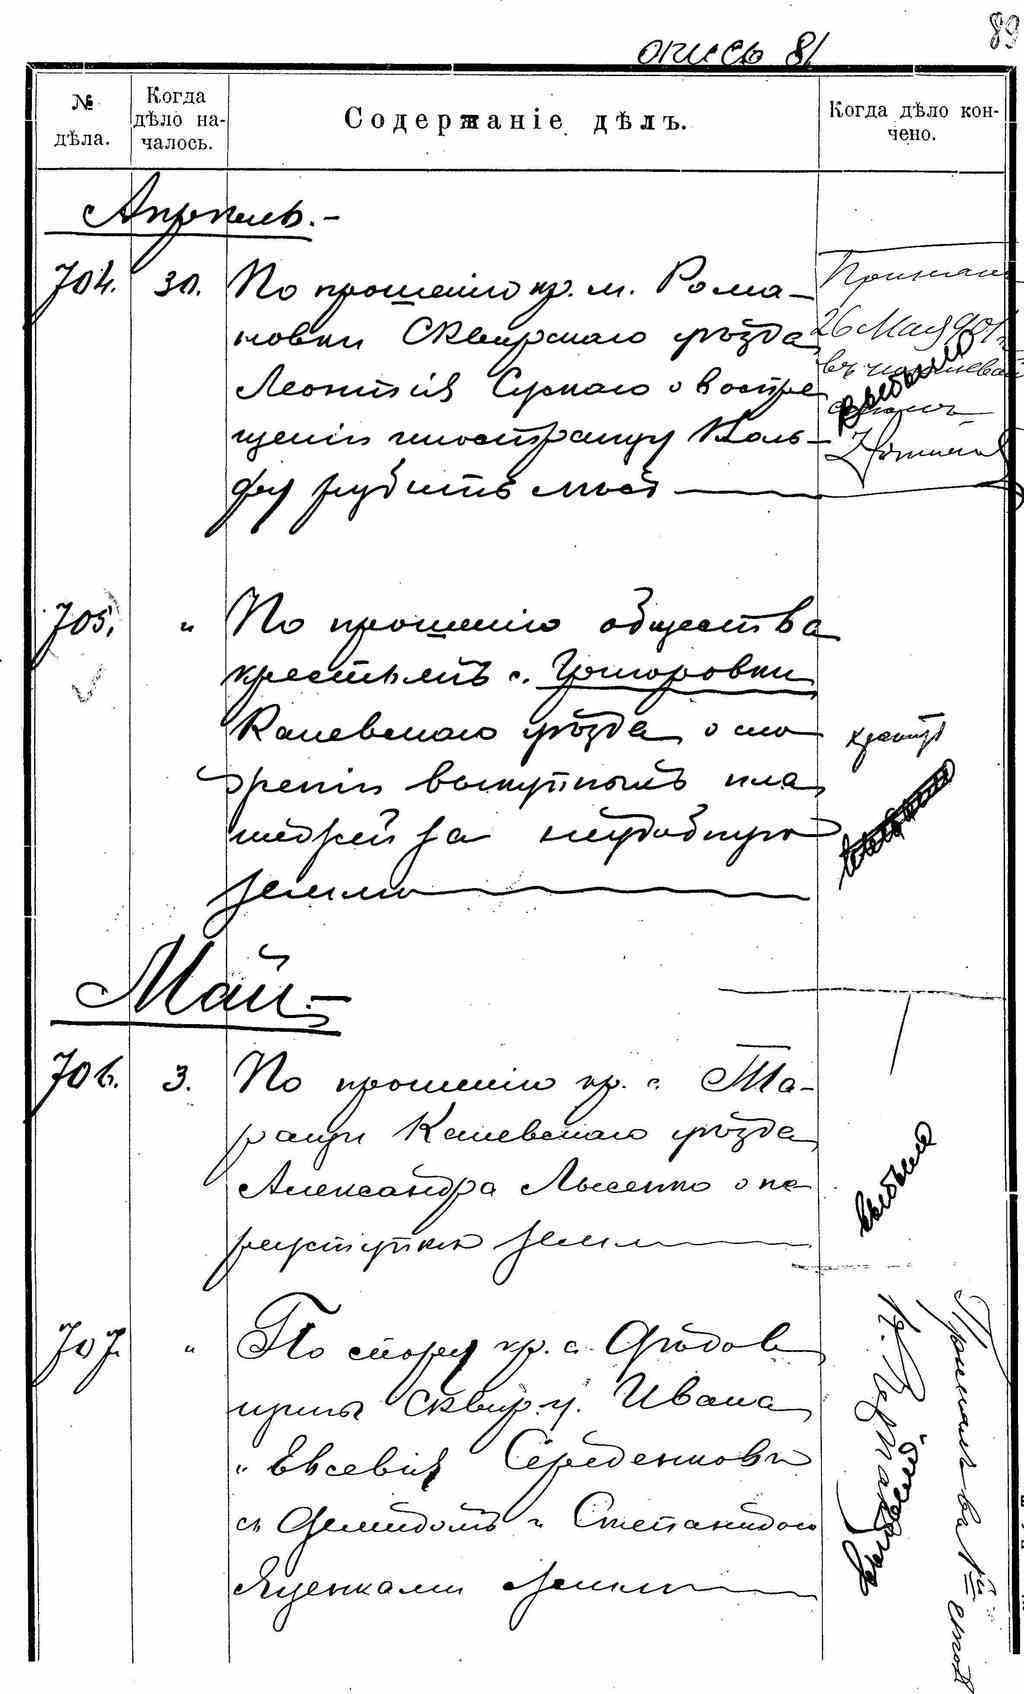 89
опись 81
№ дѣла.
Когда дѣло на-
чалось.
Содержаніе дѣлъ.
Когда дѣло кон-
чено.
Апрѣль.-
704.
30.
По прошенію кр. м. Рома-
новки Сквирскаго уѣзда
Леонтія Сускаго о воспре
щеніи иностранцу Валь-
фу рубить лѣсъ
26 Мая 901
выбыло
705.
"
По прошенію общества
крестьянъ с. Григоровки
Каневскаго уѣзда о сло
женіи выкупныхъ пла
тежей за неудобную
землю
Май.-
706.
3.
По прошенію кр. с. Та-
ращи Каневскаго уѣзда
Александра Лысенко о пе
реуступкѣ земли
выбыло
707.
"
По спору кр. с. Ѳедов
щины Сквир. у. Ивана
и Евсевія Середенковъ
съ Демидомъ и Степанидою
Яценками о земли
выбыло